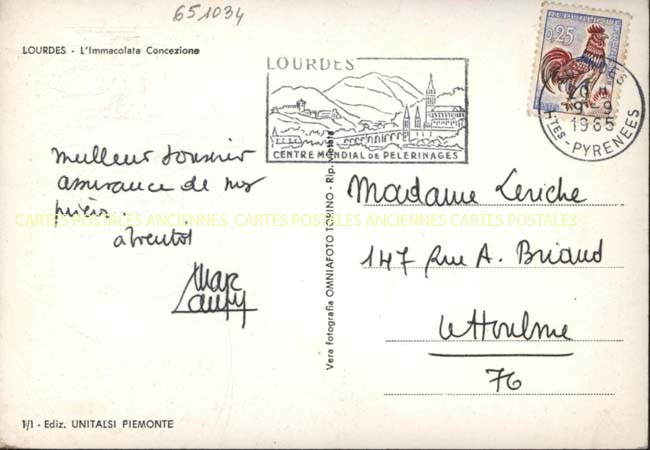 651034
LOURDES - L'Immacolata Concezione
LOURDES
CENTRE MONDIAL DE PELERINAGES
REPUBLIQUE
0,25
20 H
9-9
1965
HTES-PYRENEES
meilleur souvenir
assurance de mes
prières.
à bientôt
Marc
CARTES POSTALES ANCIENNES CARTES POSTALES ANCIENNES CARTES POSTALES
Vera fotografia OMNIAFOTO TORINO - Rip. vietata
Madame Leriche
147 Rue A. Briand
Le Houlme
76
1/I - Ediz. UNITALSI PIEMONTE